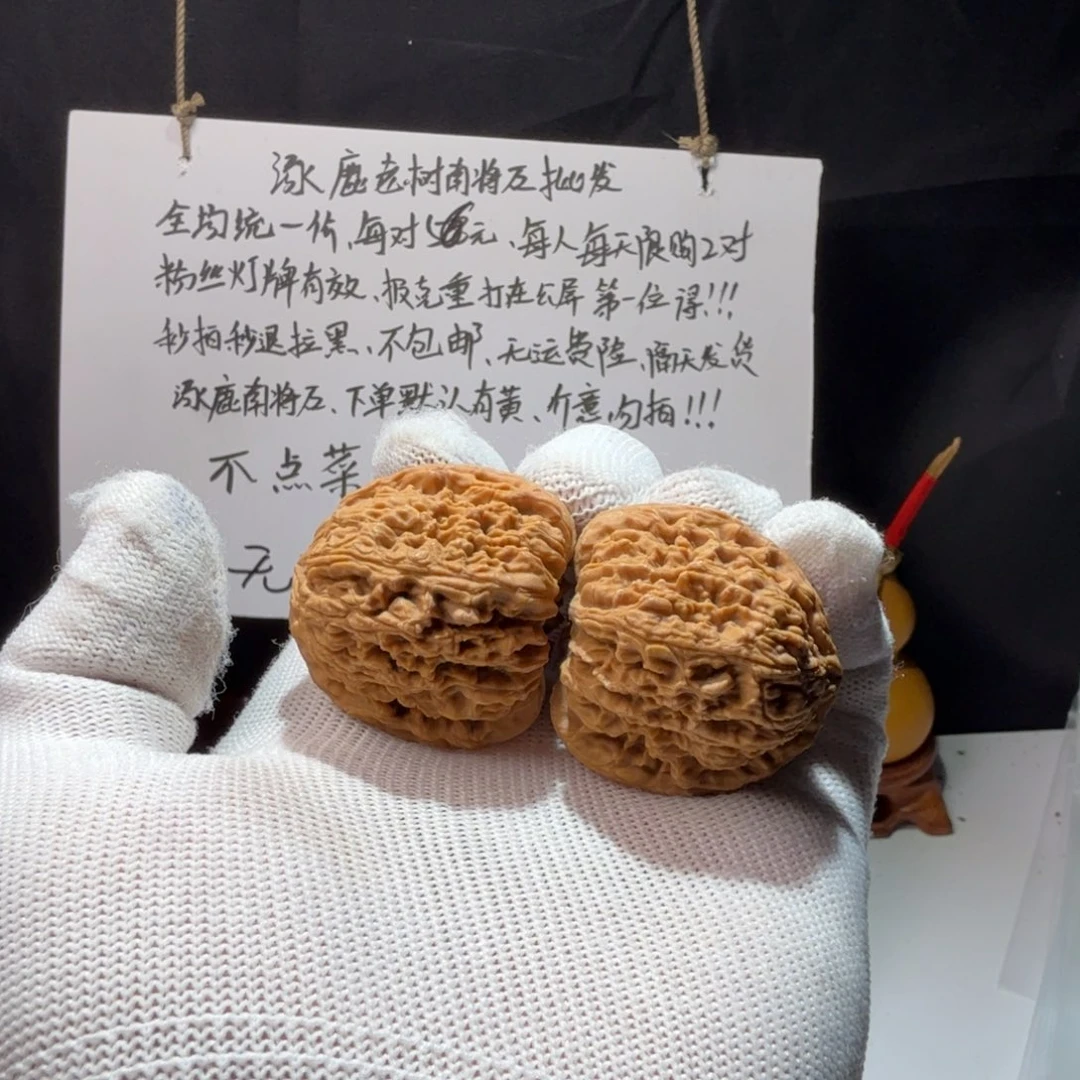 涿鹿老树南将石批发
全均统一价、每对5元、每人每天限购2对
粉丝灯牌有效、报克重打在公屏第一位得!!!
秒拍秒退拉黑、不包邮、无运费险、隔天发货
涿鹿南将石、下单默认有黄、介意勿拍!!!
不点菜
无